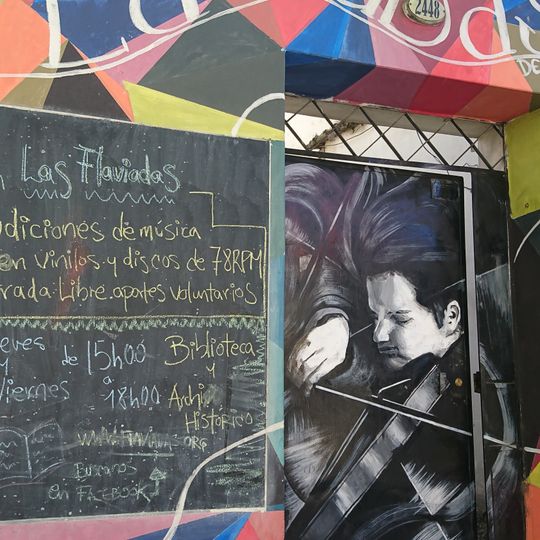 2448
Las Flaviadas
udiciones de música
en vinilos y discos de 78RPM
rada: Libre. aportes voluntarios
eves de 15h00
y a
Viernes 18h00
Biblioteca
y
Archi
Histórico
.ORG
Buscanos
en FACEBOOK
DE